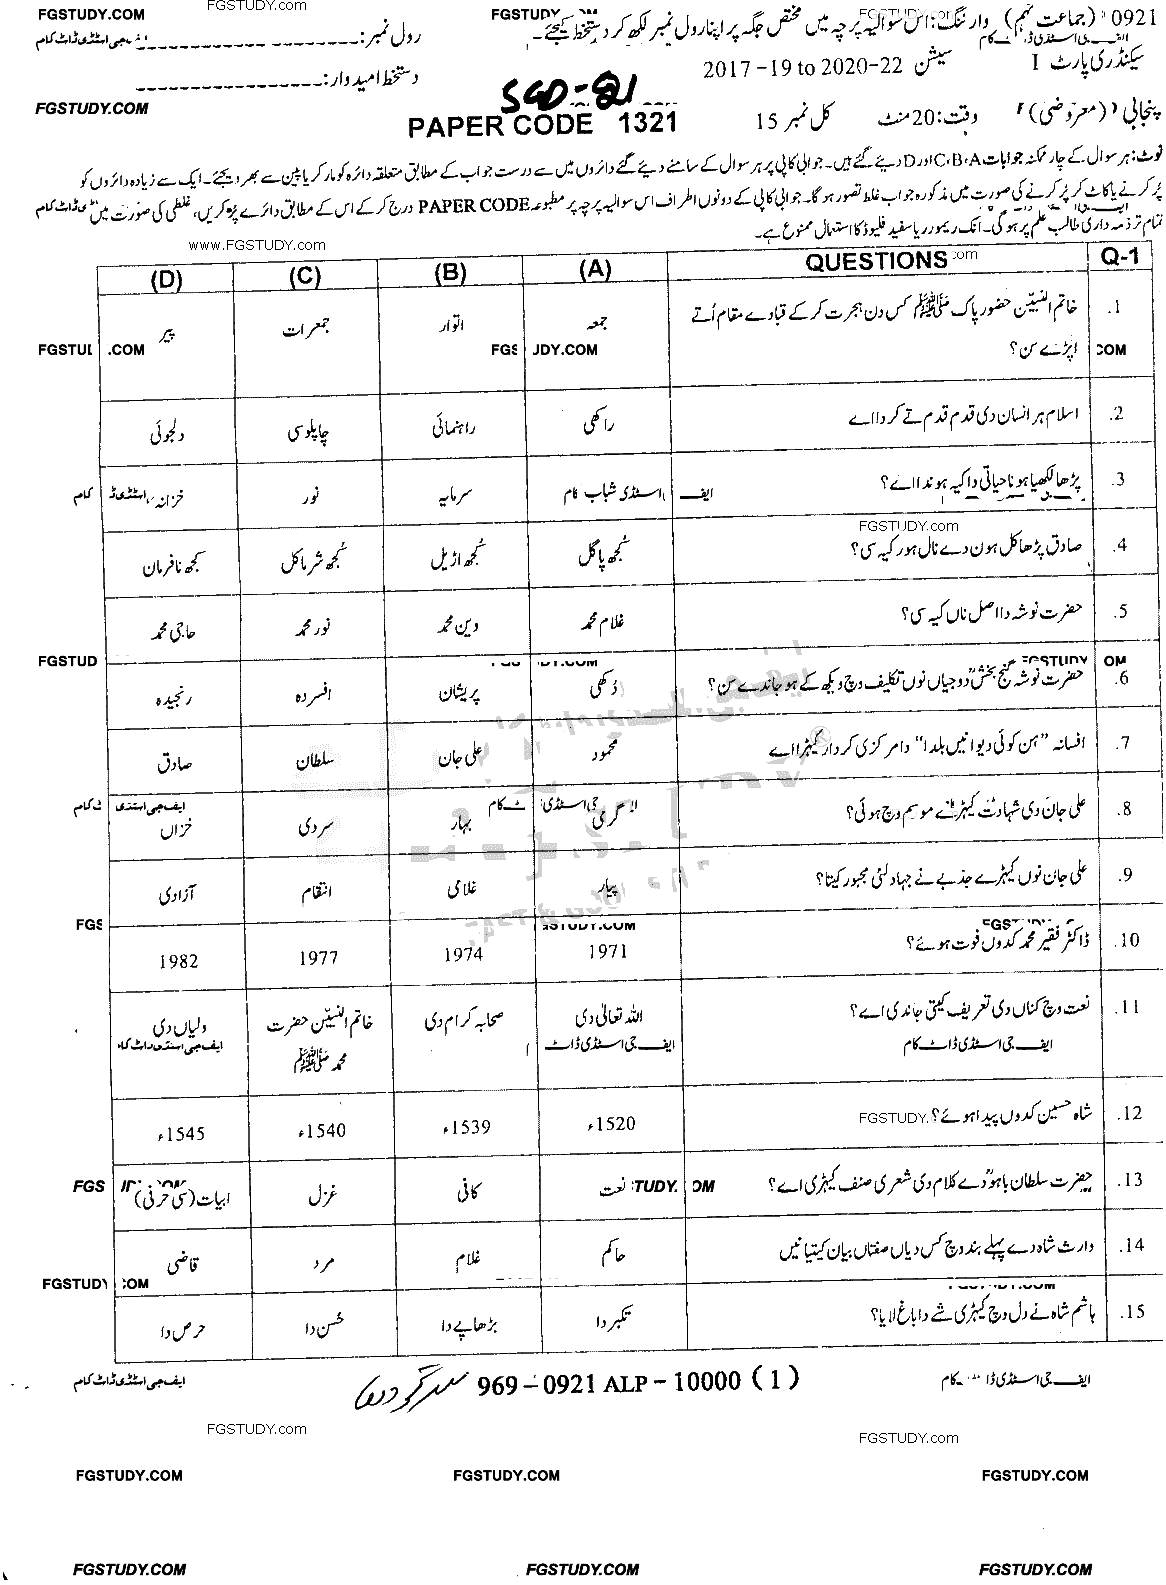 FGSTUDY.COM FGSTUDY.com FGSTUDY.COM FGSTUDY.com
0921 (جماعت نہم) وارننگ: اس سوالیہ پرچہ میں مختص جگہ پر اپنا رول نمبر لکھ کر دستخط کیجئے۔ رول نمبر: ایف جی اسٹڈی ڈاٹ کام
سیکنڈری پارٹ I سیشن 2017-19 to 2020-22 دستخط امیدوار:
FGSTUDY.COM SGD-21
پنجابی (معروضی) وقت: 20 منٹ کل نمبر 15 PAPER CODE 1321
نوٹ: ہر سوال کے چار ممکنہ جوابات C،B،A اور D دیئے گئے ہیں۔ جوابی کاپی پر ہر سوال کے سامنے دیئے گئے دائروں میں سے درست جواب کے مطابق متعلقہ دائرہ کو مارکر یا پین سے بھر دیجئے۔ ایک سے زیادہ دائروں کو
پُر کرنے یا کاٹ کر پُر کرنے کی صورت میں مذکورہ جواب غلط تصور ہو گا۔ جوابی کاپی کے دونوں اطراف اس سوالیہ پرچہ پر مطبوعہ PAPER CODE درج کر کے اس کے مطابق دائرے پُر کریں، غلطی کی صورت میں
تمام تر ذمہ داری طالب علم پر ہو گی۔ انک ریموور یا سفید فلیوڈ کا استعمال ممنوع ہے۔
www.FGSTUDY.com
Q-1 QUESTIONS (A) (B) (C) (D)
1. خاتم النبیّن حضور پاک ﷺ کس دن ہجرت کر کے قبا دے مقام اُتے اپڑے سن؟ جمعہ اتوار جمعرات پیر
2. اسلام ہر انسان دی قدم قدم تے کردا اے راکھی راہنمائی چاپلوسی دلجوئی
3. پڑھا لکھیا ہونا حیاتی دا کیہ ہوندا اے؟ شباب سرمایہ نور خزانہ
FGSTUDY.com
4. صادق پڑھاکل ہون دے نال ہور کیہ سی؟ کُجھ پاگل کُجھ اڑیل کُجھ شرماکل کجھ نافرمان
5. حضرت نوشہ دا اصل ناں کیہ سی؟ غلام محمد دین محمد نور محمد حاجی محمد
6. حضرت نوشہ گنج بخشؒ دوجیاں نوں تکلیف وچ ویکھ کے ہو جاندے سن؟ دُکھی پریشان افسردہ رنجیدہ
7. افسانہ "ہن کوئی دیوا نئیں بلدا" دا مرکزی کردار کیہڑا اے محمود علی جان سلطان صادق
8. علی جان دی شہادت کیہڑے موسم وچ ہوئی؟ گرمی بہار سردی خزاں
9. علی جان نوں کیہڑے جذبے نے جہاد لئی مجبور کیتا؟ پیار غلامی انتقام آزادی
10. ڈاکٹر فقیر محمد کدوں فوت ہوئے؟ 1971 1974 1977 1982
11. نعت وچ کناں دی تعریف کیتی جاندی اے؟ اللہ تعالیٰ دی صحابہ کرام دی خاتم النبیّن حضرت محمد ﷺ ولیاں دی
ایف جی اسٹڈی ڈاٹ کام
12. شاہ حسین کدوں پیدا ہوئے؟ 1520ء 1539ء 1540ء 1545ء
13. حضرت سلطان باہوؒ دے کلام دی شعری صنف کیہڑی اے؟ نعت کافی غزل ابیات (سی حرفی)
14. وارث شاہ دے پہلے بند وچ کس دیاں صفتاں بیان کیتیا نیں حاکم غلام مرد قاضی
15. ہاشم شاہ نے دل وچ کیہڑی شے دا باغ لایا؟ تکبر دا بڑھاپے دا حُسن دا حرص دا
ایف جی اسٹڈی ڈاٹ کام 969-0921 ALP-10000 (1) سرگودھا ایف جی اسٹڈی ڈاٹ کام
FGSTUDY.com FGSTUDY.com
FGSTUDY.COM FGSTUDY.COM FGSTUDY.COM
FGSTUDY.COM FGSTUDY.COM FGSTUDY.COM